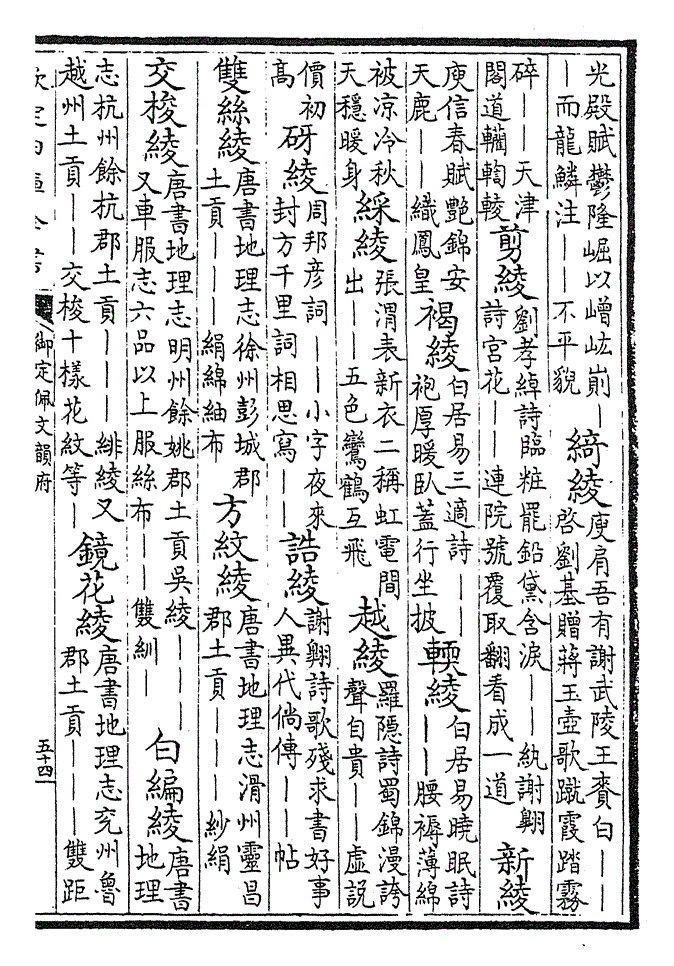 光殿賦鬱隆崛以嶒峵崱｜
｜而龍鱗注｜｜不平貌
綺綾
庾肩吾有謝武陵王賚白｜｜
啓劉基贈蔣玉壺歌蹴霞踏霧
碎｜｜天津
閣道轥輷輘
剪綾
劉孝綽詩臨粧罷鉛黛含淚｜｜紈謝翺
詩宮花｜｜連院號覆取翻看成一道
新綾
庾信春賦艷錦安
天鹿｜｜織鳳皇
褐綾
白居易三適詩｜｜
袍厚暖臥蓋行坐披
輭綾
白居易曉眠詩
｜｜腰褥薄綿
被凉冷秋
天穩暖身
綵綾
張渭表新衣二稱虹電間
出｜｜五色鸞鶴互飛
越綾
羅隱詩蜀錦漫誇
聲自貴｜｜虛說
價初
高
砑綾
周邦彦詞｜｜小字夜來
封方千里詞相思寫｜｜
誥綾
謝翺詩歌殘求書好事
人異代倘傳｜｜帖
雙絲綾
唐書地理志徐州彭城郡
土貢｜｜｜絹綿紬布
方紋綾
唐書地理志滑州靈昌
郡土貢｜｜｜紗絹
交梭綾
唐書地理志明州餘姚郡土貢吳綾｜｜｜
又車服志六品以上服絲布｜｜雙紃｜
白編綾
唐書
地理
志杭州餘杭郡土貢｜｜｜緋綾又
越州土貢｜｜交梭十樣花紋等｜
鏡花綾
唐書地理志兖州魯
郡土貢｜｜｜雙距
欽定四庫全書
御定佩文韻府
五十四